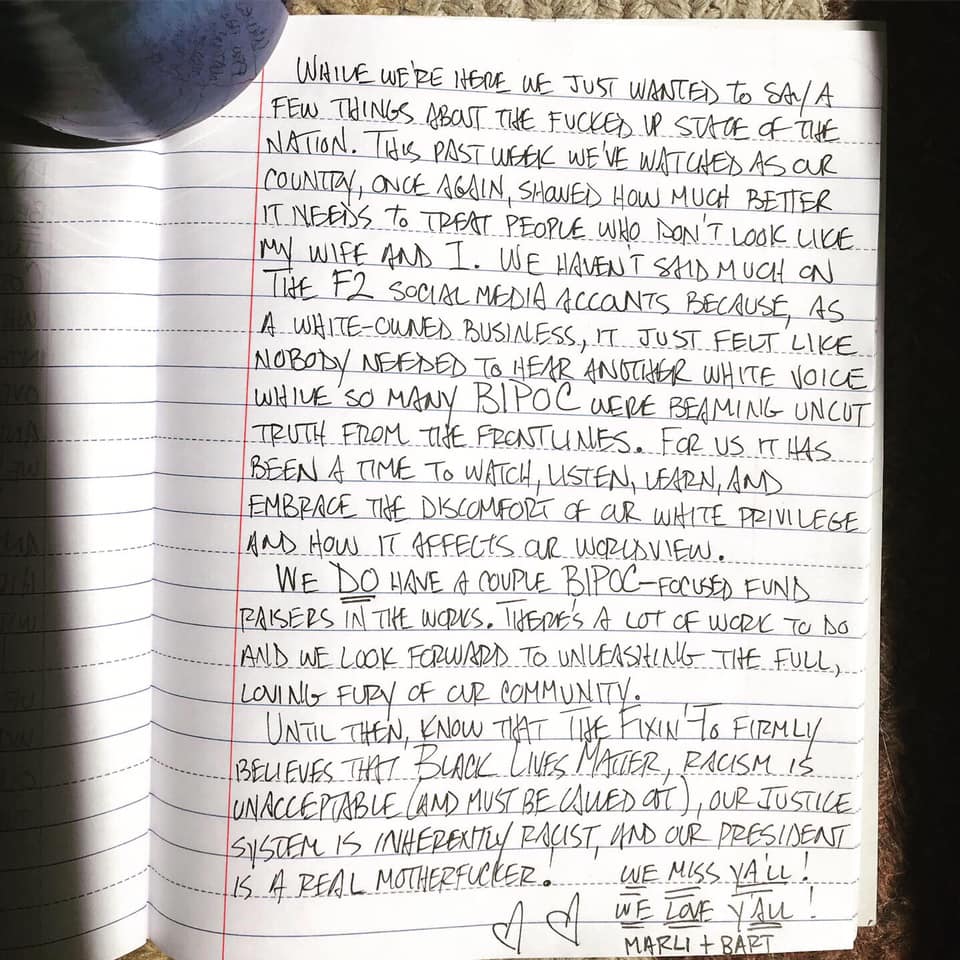 WHILE WE'RE HERE WE JUST WANTED TO SAY A
FEW THINGS ABOUT THE FUCKED UP STATE OF THE
NATION. THIS PAST WEEK WE'VE WATCHED AS OUR
COUNTRY, ONCE AGAIN, SHOWED HOW MUCH BETTER
IT NEEDS TO TREAT PEOPLE WHO DON'T LOOK LIKE
MY WIFE AND I. WE HAVEN'T SAID MUCH ON
THE F2 SOCIAL MEDIA ACCOUNTS BECAUSE, AS
A WHITE-OWNED BUSINESS, IT JUST FELT LIKE
NOBODY NEEDED TO HEAR ANOTHER WHITE VOICE
WHILE SO MANY BIPOC WERE BEAMING UNCUT
TRUTH FROM THE FRONTLINES. FOR US IT HAS
BEEN A TIME TO WATCH, LISTEN, LEARN, AND
EMBRACE THE DISCOMFORT OF OUR WHITE PRIVILEGE
AND HOW IT AFFECTS OUR WORLDVIEW.
WE DO HAVE A COUPLE BIPOC-FOCUSED FUND
RAISERS IN THE WORKS. THERE'S A LOT OF WORK TO DO
AND WE LOOK FORWARD TO UNLEASHING THE FULL,
LOVING FURY OF OUR COMMUNITY.
UNTIL THEN, KNOW THAT THE FIXIN' TO FIRMLY
BELIEVES THAT BLACK LIVES MATTER, RACISM IS
UNACCEPTABLE (AND MUST BE CALLED OUT), OUR JUSTICE
SYSTEM IS INHERENTLY RACIST, AND OUR PRESIDENT
IS A REAL MOTHERFUCKER. WE MISS YA'LL!
WE LOVE Y'ALL!
MARLI + BART